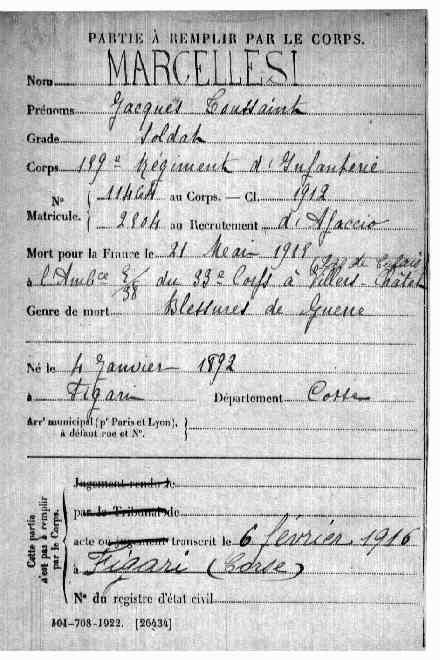 PARTIE À REMPLIR PAR LE CORPS.
Nom MARCELLESI
Prénoms Jacques Toussaint
Grade Soldat
Corps 189e Régiment d'Infanterie
No 11464 au Corps. — Cl. 1912
Matricule. 2804 au Recrutement d'Ajaccio
Mort pour la France le 21 Mai 1915
(Pas de Calais)
à l'Ambce 8/38 du 33e Corps à Villers-Châtel
Genre de mort Blessures de Guerre
Né le 4 Janvier 1892
à Figari Département Corse
Arrt municipal (pr Paris et Lyon),
à défaut rue et No.
Cette partie
n'est pas à remplir
par le Corps.
Jugement rendu le
par le Tribunal de
acte ou jugement transcrit le 6 février 1916
à Figari (Corse)
No du registre d'état civil
101-708-1922. [26434]